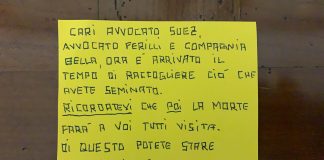 CARI AVVOCATO SUEZ,
AVVOCATO PERILLI E COMPAGNIA
BELLA, ORA È ARRIVATO IL
TEMPO DI RACCOGLIERE CIÒ CHE
AVETE SEMINATO.
RICORDATEVI CHE POI LA MORTE
FARÀ A VOI TUTTI VISITA.
DI QUESTO POTETE STARE